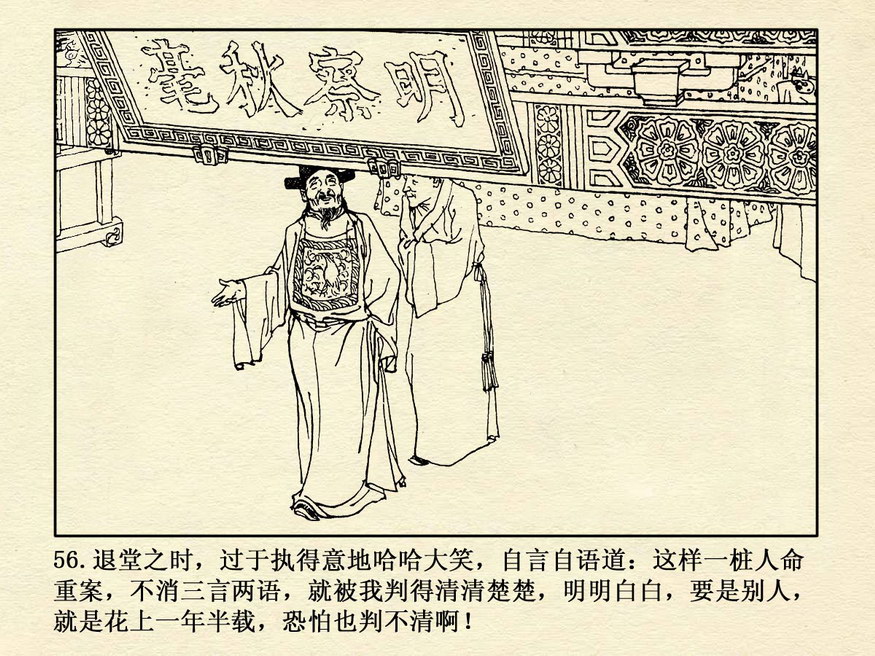 明察秋毫
56.退堂之时，过于执得意地哈哈大笑，自言自语道：这样一桩人命
重案，不消三言两语，就被我判得清清楚楚，明明白白，要是别人，
就是花上一年半载，恐怕也判不清啊！